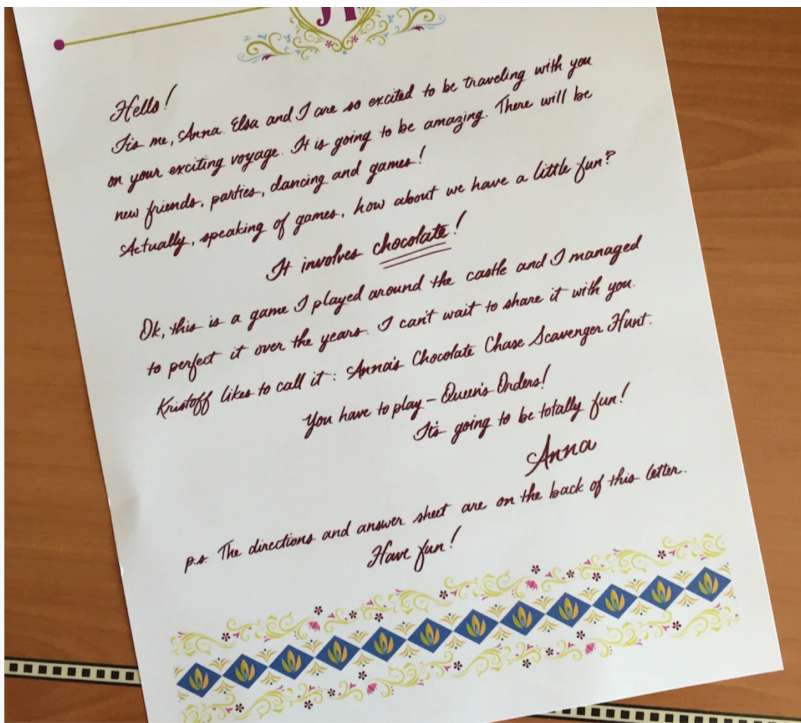 Hello!
It's me, Anna. Elsa and I are so excited to be traveling with you
on your exciting voyage. It is going to be amazing. There will be
new friends, parties, dancing and games!
Actually, speaking of games, how about we have a little fun?
It involves chocolate!
Ok, this is a game I played around the castle and I managed
to perfect it over the years. I can't wait to share it with you.
Kristoff likes to call it: Anna's Chocolate Chase Scavenger Hunt.
You have to play - Queen's Orders!
It's going to be totally fun!
Anna
p.s. The directions and answer sheet are on the back of this letter.
Have fun!